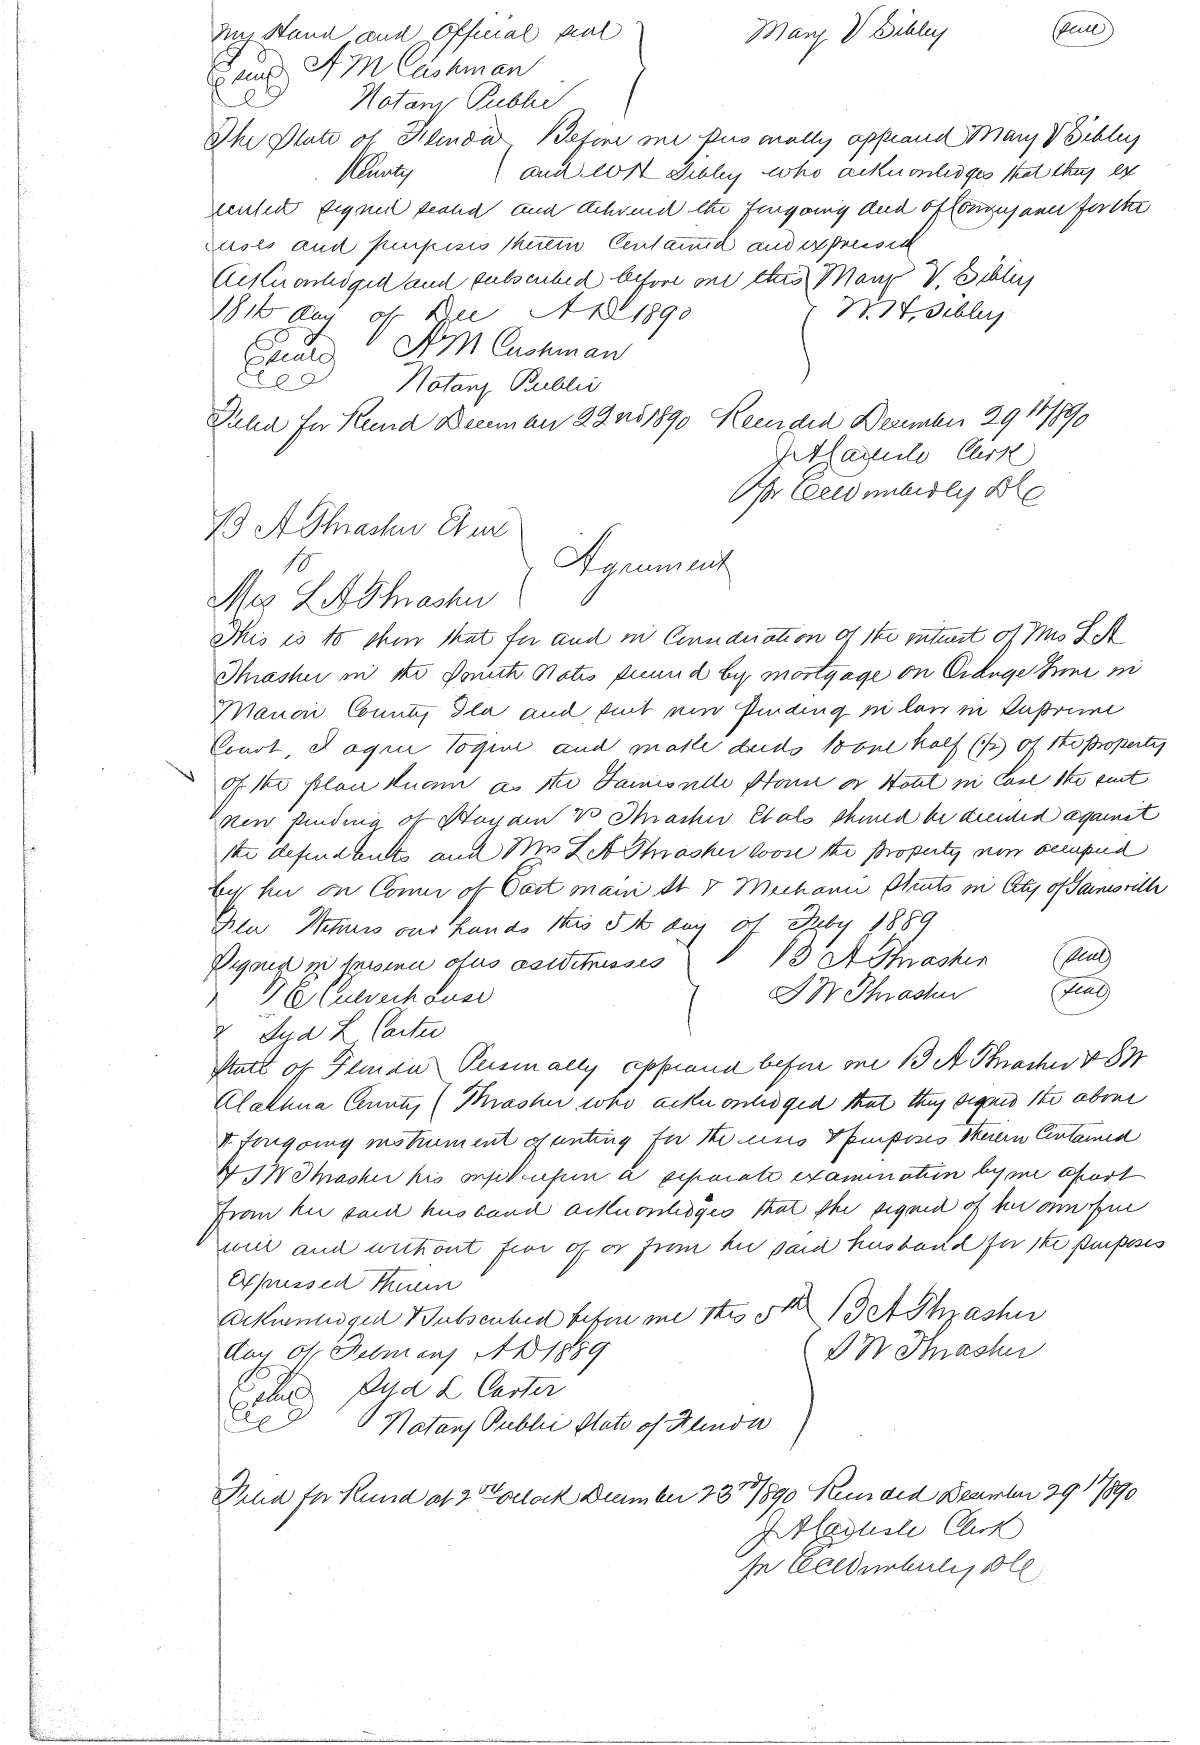 my Hand and Official seal Mary V Sibley (seal)
(seal) A M Cushman
Notary Public
The State of Florida Before me personally appeared Mary V Sibley
County and W H Sibley who acknowledges that they ex
ecuted signed sealed and delivered the foregoing deed of Conveyance for the
uses and purposes therein Contained and expressed
Acknowledged and subscribed before me this Mary V. Sibley
18th day of Dec A D 1890 W. H. Sibley
(Seal) A M Cushman
Notary Public
Filed for Record December 22nd 1890 Recorded December 29th/890
J A Carlisle Clerk
pr Wimberly D C
B A Thrasher Et ux
to Agreement
Mrs L A Thrasher
This is to show that for and in Consideration of the interest of Mrs L A
Thrasher in the Notes secured by mortgage on Orange Grove in
Marion County Fla and suit now pending in law in Supreme
Court, I agree to give and make deeds to one half (½) of the property
of the place known as the Gainesville House or Hotel in Case the suit
now pending of Hayden vs Thrasher Et als should be decided against
the defendants and Mrs L A Thrasher loose the property now occupied
by her on Corner of East main St & Mechanic Streets in City of Gainesville
Fla Witness our hands this 5th day of Feby 1889
Signed in presence of us as witnesses B A Thrasher (seal)
J E Culverhouse S W Thrasher (seal)
& Syd L Carter
State of Florida Personally appeared before me B A Thrasher & S W
Alachua County Thrasher who acknowledged that they signed the above
& foregoing instrument of writing for the uses & purposes therein Contained
& S W Thrasher his wife upon a separate examination by me apart
from her said husband acknowledges that she signed of her own free
will and without fear of or from her said husband for the purposes
expressed therein
Acknowledged & Subscribed before me this 5th B A Thrasher
day of February A D 1889 S W Thrasher
(seal) Syd L Carter
Notary Public State of Florida
Filed for Record at 2 oclock December 23rd/890 Recorded December 29th/890
J A Carlisle Clerk
pr Wimberly D C